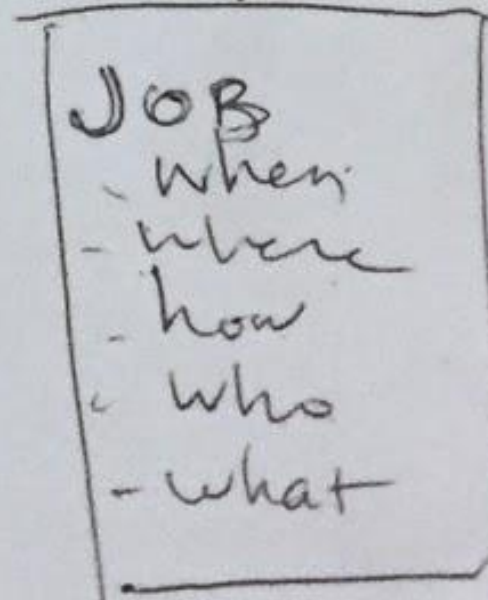 JOB
- when
- where
- how
- who
- what